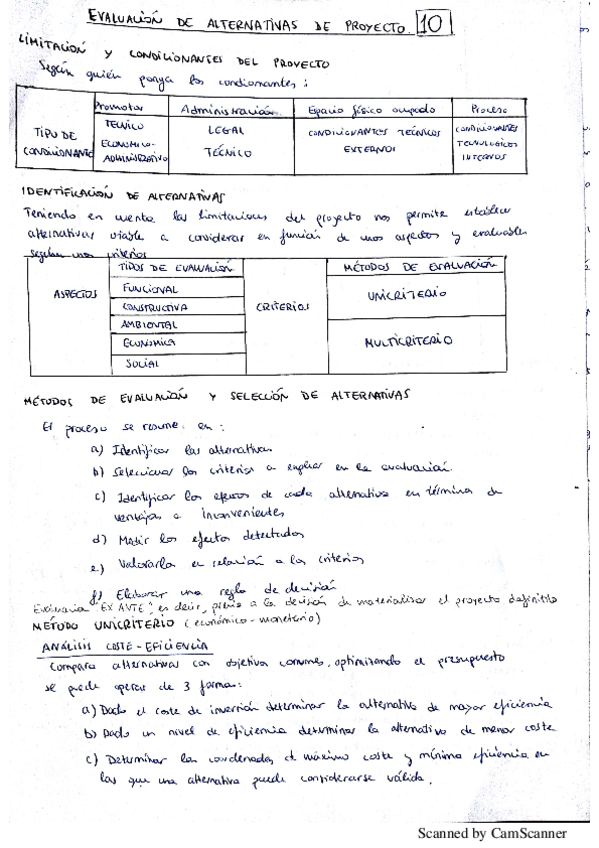 EVALUACIÓN DE ALTERNATIVAS DE PROYECTO. 10
LIMITACIÓN Y CONDICIONANTES DEL PROYECTO
Según quién ponga los condicionantes:
Promotor Administración Espacio físico ocupado Proceso
TIPO DE CONDICIONANTE
TECNICO
ECONOMICO-ADMINISTRATIVO
LEGAL
TÉCNICO
CONDICIONANTES TECNICOS
EXTERNOS
CONDICIONANTES
TECNOLOGICOS
INTERNOS
IDENTIFICACIÓN DE ALTERNATIVAS
Teniendo en cuenta las limitaciones del proyecto nos permite establecer
alternativas viables a considerar en función de unos aspectos y evaluables
según unos criterios
TIPOS DE EVALUACIÓN MÉTODOS DE EVALUACIÓN
ASPECTOS
FUNCIONAL
CONSTRUCTIVA
AMBIENTAL
ECONOMICA
SOCIAL
CRITERIOS
UNICRITERIO
MULTICRITERIO
MÉTODOS DE EVALUACIÓN Y SELECCIÓN DE ALTERNATIVAS
El proceso se resume en:
a) Identificar las alternativas
b) Seleccionar los criterios a emplear en la evaluación.
c) Identificar los efectos de cada alternativa en término de
ventajas e inconvenientes
d) Medir los efectos detectados
e) Valorarlos en relación a los criterios
f) Elaborar una regla de decisión
"EX ANTE", es decir, previo a la decisión de materializar el proyecto definitivo
MÉTODO UNICRITERIO (económico-monetario)
ANÁLISIS COSTE-EFICIENCIA
Compara alternativas con objetivos comunes, optimizando el presupuesto
se puede operar de 3 formas:
a) Dado el coste de inversión determinar la alternativa de mayor eficiencia
b) Dado un nivel de eficiencia determinar la alternativa de menor coste
c) Determinar las coordenadas de máximo coste y mínima eficiencia en
las que una alternativa puede considerarse válida.
Scanned by CamScanner